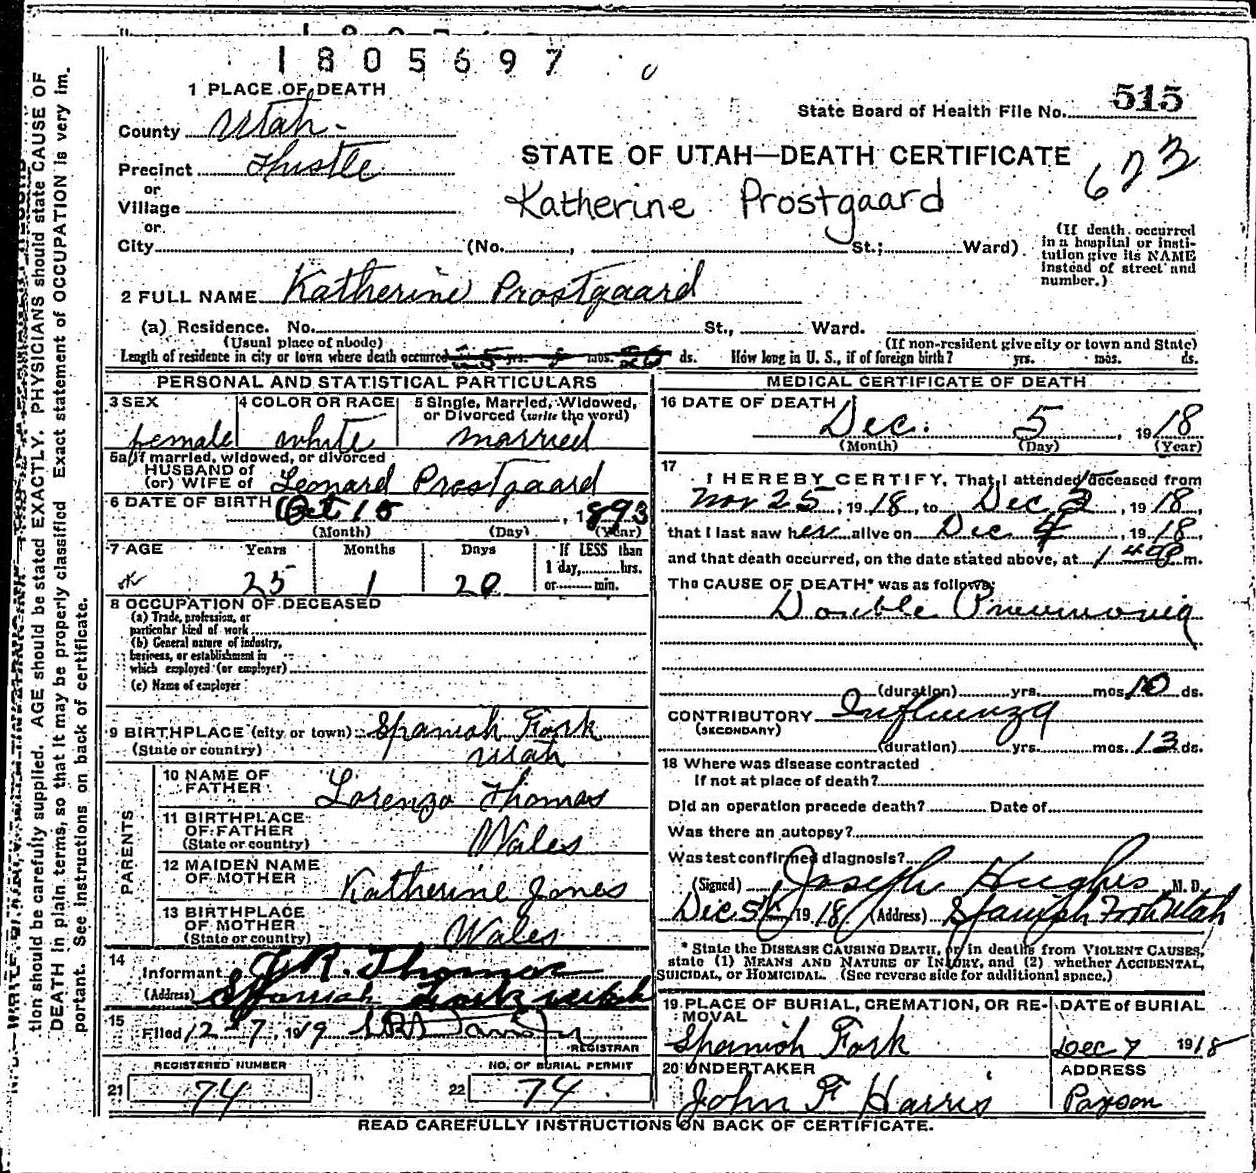 1805697
1 PLACE OF DEATH
State Board of Health File No. 515
County Utah
STATE OF UTAH—DEATH CERTIFICATE
673
Precinct Thistle
or
Village
Katherine Prostgaard
or
City (No. , St.; Ward)
(If death occurred in a hospital or insti-
tution give its NAME instead of street and number.)
2 FULL NAME Katherine Prostgaard
(a) Residence. No. St., Ward.
(Usual place of abode) (If non-resident give city or town and State)
Length of residence in city or town where death occurred yrs. mos. ds. How long in U. S., if of foreign birth? yrs. mos. ds.
PERSONAL AND STATISTICAL PARTICULARS
3 SEX female
4 COLOR OR RACE white
5 Single, Married, Widowed, or Divorced (write the word) married
5a If married, widowed, or divorced
HUSBAND of
(or) WIFE of Leonard Prostgaard
6 DATE OF BIRTH Oct 15, 1893
(Month) (Day) (Year)
7 AGE Years Months Days If LESS than
1 day, hrs.
or min.
25 1 20
8 OCCUPATION OF DECEASED
(a) Trade, profession, or
particular kind of work
(b) General nature of industry,
business, or establishment in
which employed (or employer)
(c) Name of employer
9 BIRTHPLACE (city or town) Spanish Fork
(State or country) Utah
PARENTS
10 NAME OF FATHER Lorenzo Thomas
11 BIRTHPLACE OF FATHER (State or country) Wales
12 MAIDEN NAME OF MOTHER Katherine Jones
13 BIRTHPLACE OF MOTHER (State or country) Wales
14 Informant J R. Thomas
(Address) Spanish Fork Utah
15 Filed 12-7, 1919
REGISTRAR
REGISTERED NUMBER NO. OF BURIAL PERMIT
21 74 22 74
MEDICAL CERTIFICATE OF DEATH
16 DATE OF DEATH
Dec. 5, 1918
(Month) (Day) (Year)
17 I HEREBY CERTIFY, That I attended deceased from
Nov 25, 1918, to Dec, 1918,
that I last saw her alive on Dec 4, 1918,
and that death occurred, on the date stated above, at m.
The CAUSE OF DEATH* was as follows:
Double Pneumonia
(duration) yrs. mos. 10 ds.
CONTRIBUTORY Influenza
(SECONDARY)
(duration) yrs. mos. 13 ds.
18 Where was disease contracted
If not at place of death?
Did an operation precede death? Date of
Was there an autopsy?
Was test confirmed diagnosis?
(Signed) Joseph Hughes M. D.
Dec 5th 1918 (Address) Spanish Fork Utah
* State the DISEASE CAUSING DEATH, or in deaths from VIOLENT CAUSES,
state (1) MEANS AND NATURE OF INJURY, and (2) whether ACCIDENTAL,
SUICIDAL, or HOMICIDAL. (See reverse side for additional space.)
19 PLACE OF BURIAL, CREMATION, OR RE-
MOVAL
Spanish Fork
DATE of BURIAL
Dec 7 1918
20 UNDERTAKER
John F Harris
ADDRESS
Payson
READ CAREFULLY INSTRUCTIONS ON BACK OF CERTIFICATE.
tion should be carefully supplied. AGE should be stated EXACTLY. PHYSICIANS should state CAUSE OF
DEATH in plain terms, so that it may be properly classified Exact statement of OCCUPATION is very im-
portant. See instructions on back of certificate.